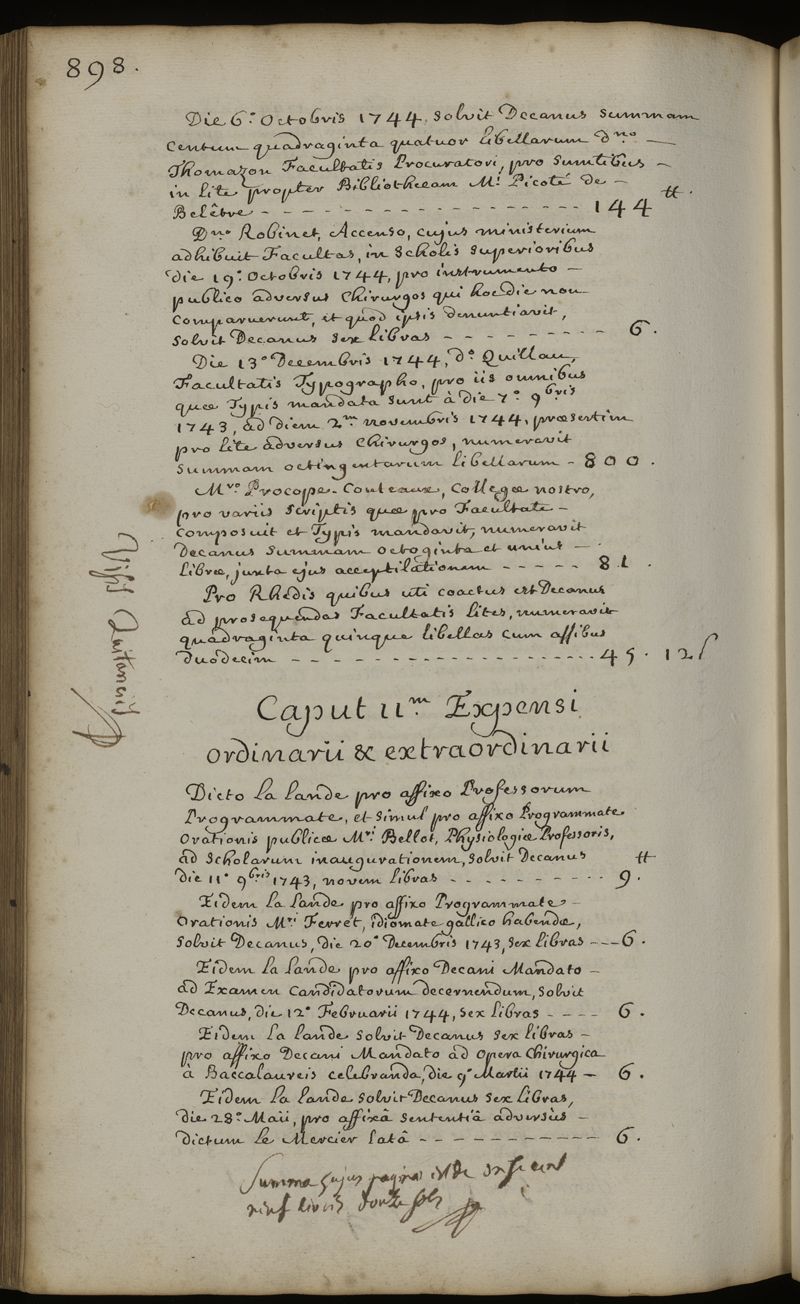 898.
Die 6.ª Octobris 1744. solvit Decanus summam
centum quadraginta quatuor libellarum d.no —
Thomazon Facultatis Procuratori, pro sumtibus —
in lite propter Bibliothecam M.i Picoté de —
Belêtre - - - - - - - - - - - - - - - - - 144 ₶.
D.no Robinet, Accenso, cujus ministerium
adhibuit Facultas, in Scholis superioribus
die 19.ª Octobris 1744, pro instrumento —
publico adversus Chirurgos qui hocdie non
comparuerunt, et quod ipsis denuntiavit,
solvit Decanus sex libras - - - - - - - - - 6.
Die 13.ª Decembris 1744, d.º Quillau,
Facultatis Typographo, pro iis omnibus
quæ Typis mandata sunt à die 7.ª 9bris
1743, ad diem 2.m novembris 1744, præsertim
pro lite adversus Chirurgos, numeravit
summam octingentarum libellarum - 800.
M.ro Procope-Couteaux, Collegæ nostro,
pro variis scriptis quæ pro Facultate —
composuit et Typis mandavit, numeravit
Decanus summam octoginta et unius —
libræ, juxta ejus acceptilationem - - - - - 81.
Pro Rhedis quibus uti coactus est Decanus
ad prosequendas Facultatis lites, numeravit
quadraginta quinque libellas cum assibus
duodecim - - - - - - - - - - - - - - - - - - 45. 12 s
Caput 11.m Expensi
ordinarii & extraordinarii
Dicto La Lande pro affixo Professorum
Programmate, et simul pro affixo Programmate
Orationis publicæ M.ri Bellot, Physiologiæ Professoris,
ad Scholarum inaugurationem, solvit Decanus
die 11.ª 9bris 1743, novem libras - - - - - - - - - 9 ₶.
Eidem La Lande pro affixo Programmate —
Orationis M.ri Ferret, idiomate gallico habendæ,
solvit Decanus, die 20.ª Decembris 1743, sex libras - - - 6.
Eidem La Lande pro affixo Decani Mandato —
ad Examen Candidatorum decernendum, solvit
Decanus, die 12.ª Februarii 1744, sex libras - - - - 6.
Eidem La Lande solvit Decanus sex libras —
pro affixo Decani Mandato ad opera Chirurgica
à Baccalaureis celebranda, die 9.ª Martii 1744 — 6.
Eidem La Lande solvit Decanus sex libras,
die 28.ª Maii, pro affixâ sententiâ adversùs —
dictum Le Mercier latâ - - - - - - - - - - - 6.
Summa hujus paginæ est de onse cent
neuf livres douze sols